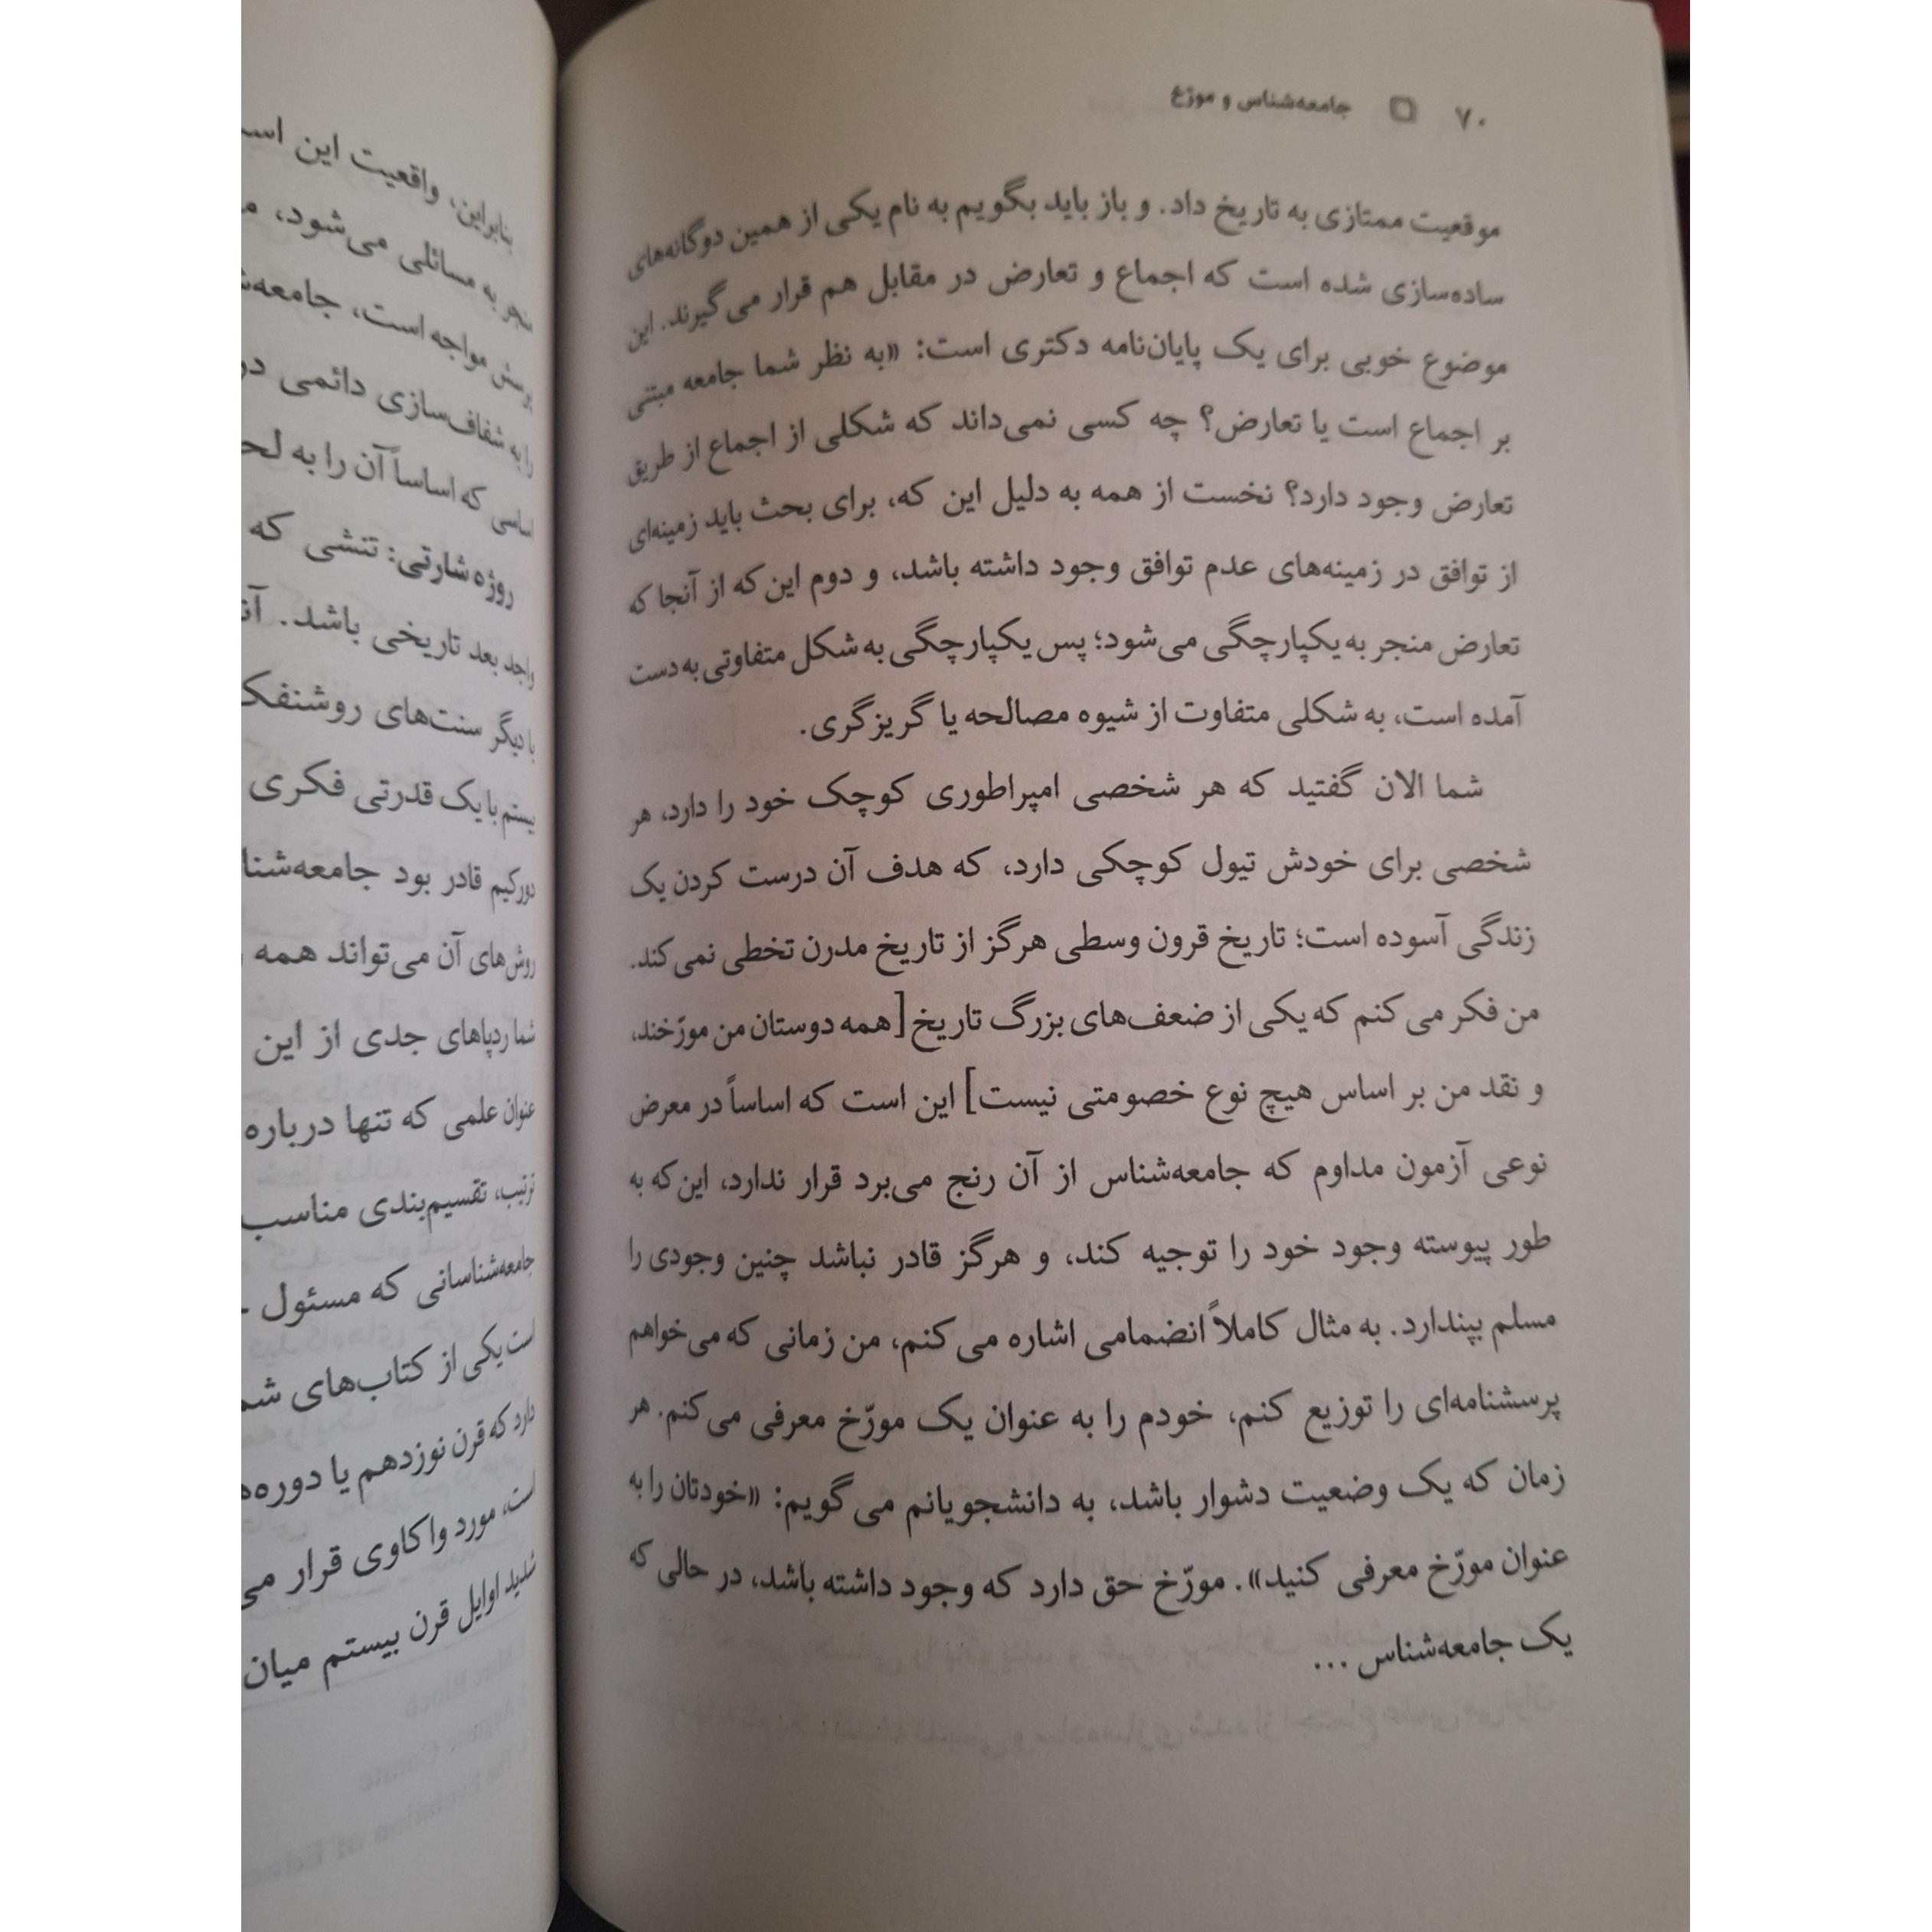 ۷۰ جامعه‌شناس و مورّخ
موقعیت ممتازی به تاریخ داد. و باز باید بگویم به نام یکی از همین دوگانه‌های
ساده‌سازی شده است که اجماع و تعارض در مقابل هم قرار می‌گیرند. این
موضوع خوبی برای یک پایان‌نامه دکتری است: «به نظر شما جامعه مبتنی
بر اجماع است یا تعارض؟ چه کسی نمی‌داند که شکلی از اجماع از طریق
تعارض وجود دارد؟ نخست از همه به دلیل این که، برای بحث باید زمینه‌ای
از توافق در زمینه‌های عدم توافق وجود داشته باشد، و دوم این‌که از آنجا که
تعارض منجر به یکپارچگی می‌شود؛ پس یکپارچگی به شکل متفاوتی به دست
آمده است، به شکلی متفاوت از شیوه مصالحه یا گریزگری.
شما الان گفتید که هر شخصی امپراطوری کوچک خود را دارد، هر
شخصی برای خودش تیول کوچکی دارد، که هدف آن درست کردن یک
زندگی آسوده است؛ تاریخ قرون وسطی هرگز از تاریخ مدرن تخطی نمی‌کند.
من فکر می‌کنم که یکی از ضعف‌های بزرگ تاریخ [همه دوستان من مورّخند،
و نقد من بر اساس هیچ نوع خصومتی نیست] این است که اساساً در معرض
نوعی آزمون مداوم که جامعه‌شناس از آن رنج می‌برد قرار ندارد، این‌که به
طور پیوسته وجود خود را توجیه کند، و هرگز قادر نباشد چنین وجودی را
مسلم بپندارد. به مثال کاملاً انضمامی اشاره می‌کنم، من زمانی که می‌خواهم
پرسشنامه‌ای را توزیع کنم، خودم را به عنوان یک مورّخ معرفی می‌کنم. هر
زمان که یک وضعیت دشوار باشد، به دانشجویانم می‌گویم: «خودتان را به
عنوان مورّخ معرفی کنید». مورّخ حق دارد که وجود داشته باشد، در حالی که
یک جامعه‌شناس ...
بنابراین، واقعیت این
منجر به مسائلی می‌شود،
پرسش مواجه است،
را به شفاف‌سازی دائمی
اساسی که اساساً آن را به
روژه شارتی: تنشی که
واجد بعد تاریخی باشد.
با دیگر سنت‌های
بیستم با یک قدرتی فکری
دورکیم قادر بود
روش‌های آن می‌تواند همه
شما ردپاهای جدی از این
عنوان علمی که تنها درباره
ترتیب، تقسیم‌بندی مناسب
جامعه‌شناسانی که مسئول
است یکی از کتاب‌های
دارد که قرن نوزدهم یا
است، مورد واکاوی قرار
شدید اوایل قرن بیستم میان